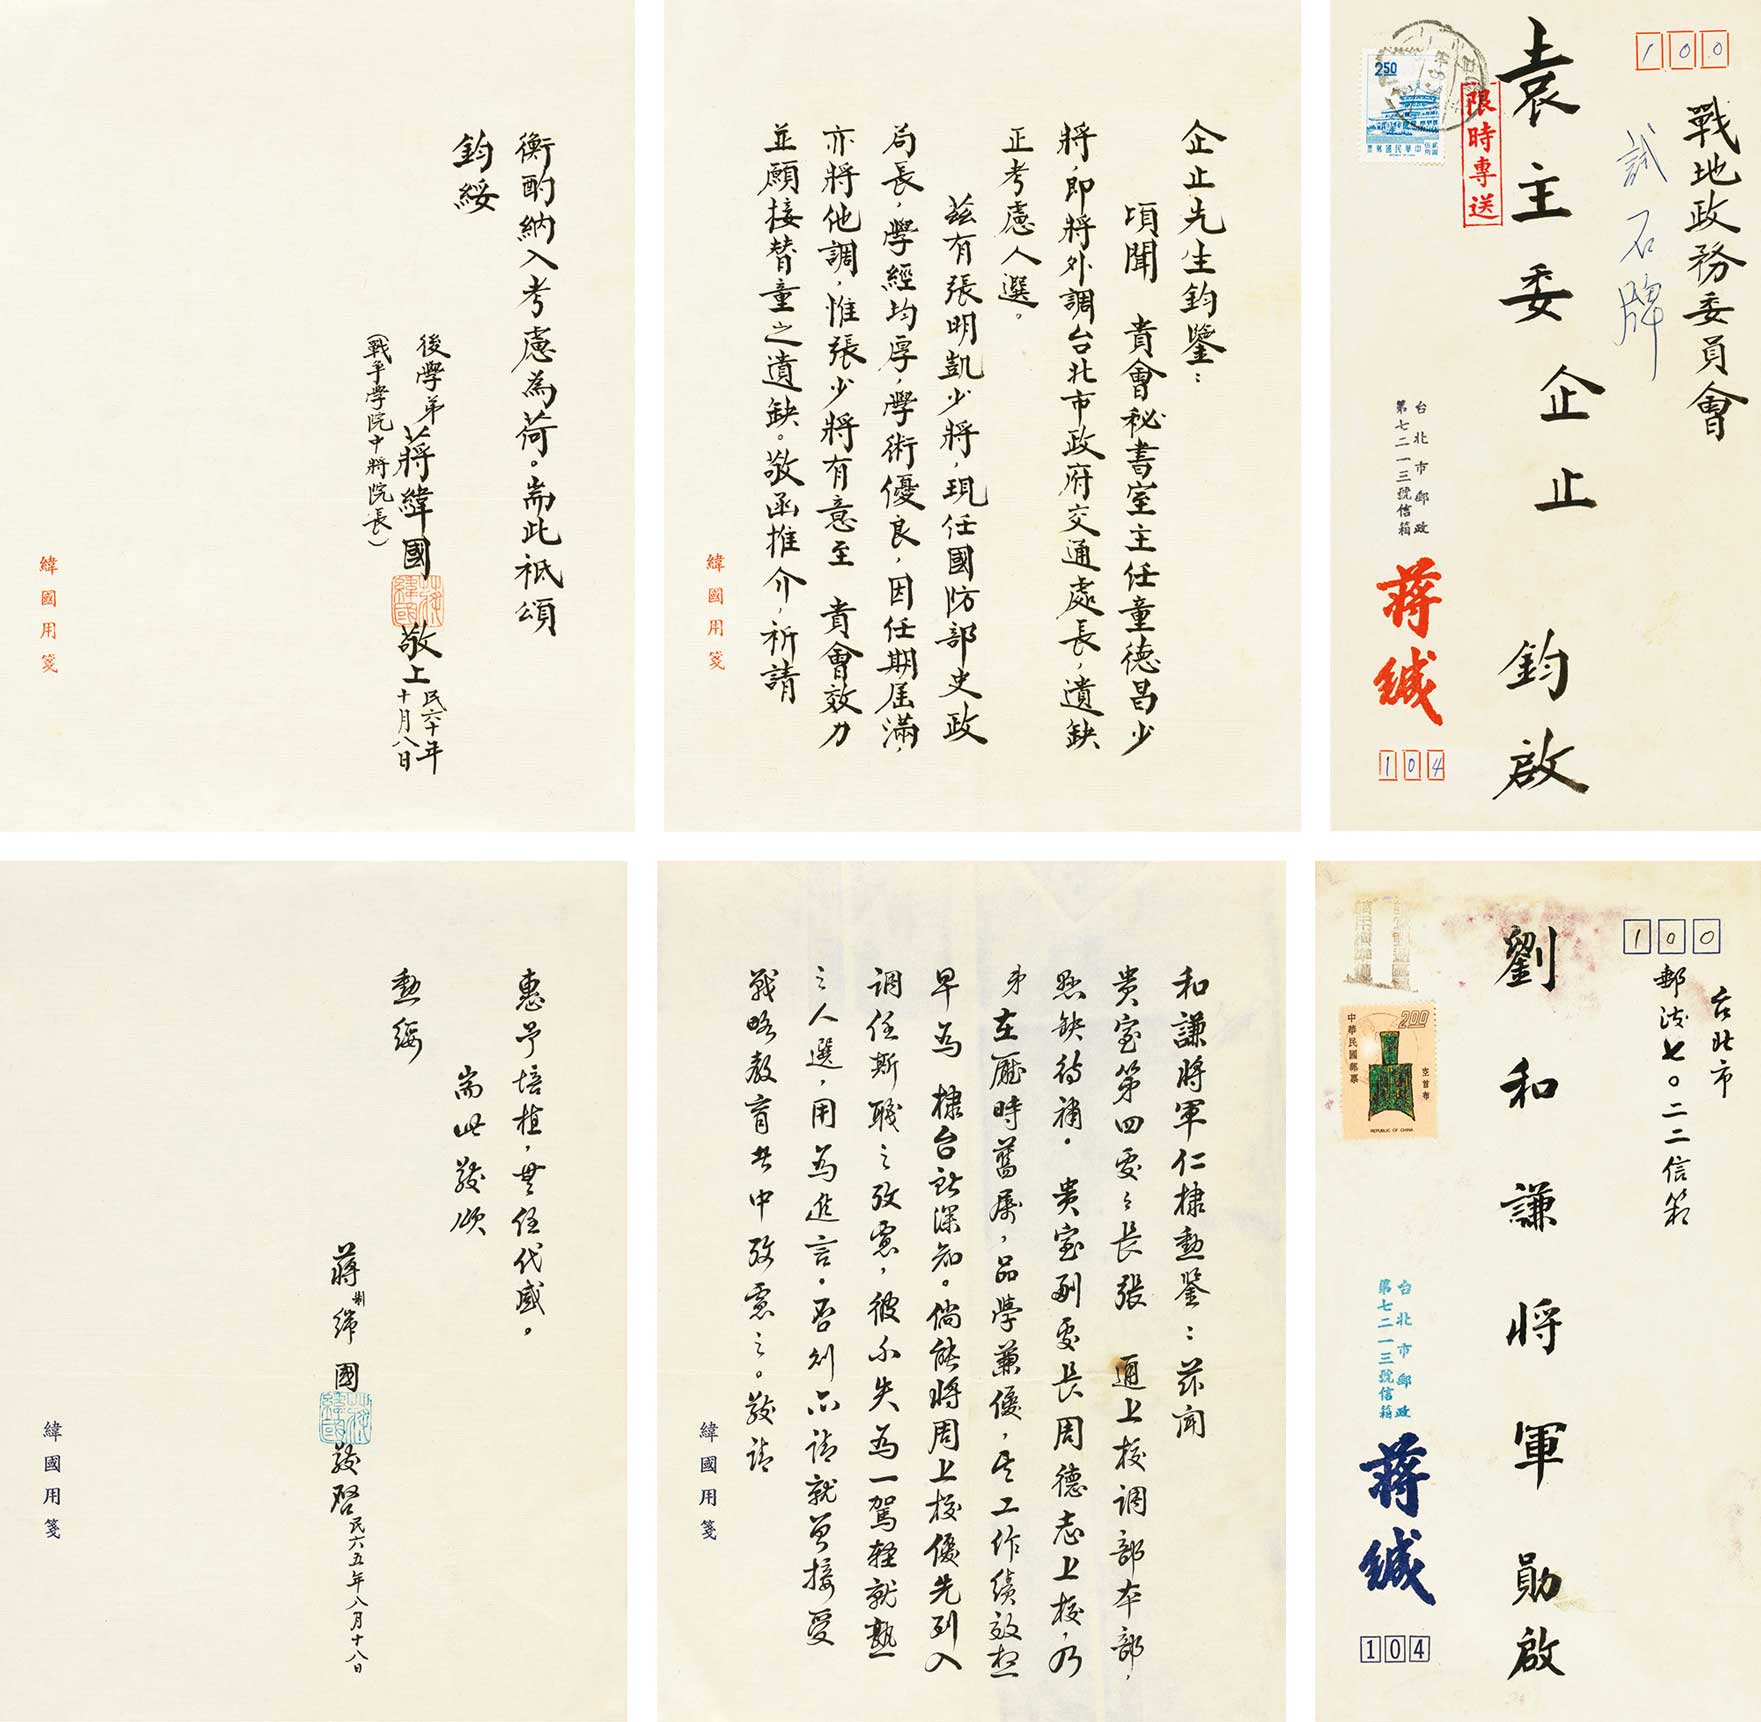 100
戰地政務委員會
試石牌
袁主委企止 鈞啟
限時專送
2.50
中華民國郵票
REPUBLIC OF CHINA
台北市郵政
第七二一三號信箱
蔣緘
104
企止先生鈞鑒：
頃聞 貴會秘書室主任童德昌少
將，即將外調台北市政府交通處長，遺缺
正考慮人選。
茲有張明凱少將，現任國防部史政
局長，學經均厚，學術優良，因任期屆滿，
亦將他調，惟張少將有意至 貴會效力
並願接替童之遺缺。敬函推介，祈請
緯國用箋
衡酌納入考慮為荷。耑此祇頌
鈞綏
後學弟 蔣緯國
蔣緯國
敬上
民六十年
十月八日
(戰爭學院中將院長)
緯國用箋
100
台北市
郵政七〇二二信箱
劉和謙將軍勛啟
中華民國郵票
2.00
空首布
REPUBLIC OF CHINA
台北市郵政
第七二一三號信箱
蔣緘
104
和謙將軍仁棣勳鑒：茲聞
貴室第四處處長張 通上校調部本部，
懸缺待補。貴室副處長周德志上校，乃
弟在歷時舊屬，品學兼優，其工作績效想
早為 棣台所深知。倘能將周上校優先列入
調任斯職之考慮，彼不失為一駕輕就熟
之人選，用為進言。否則亦請就曾接受
戰略教育者中考慮之。敬請
緯國用箋
惠予培植，無任代感。
耑此敬頌
勳綏
蔣制緯國
蔣緯國
敬啓
民六五年八月十八日
緯國用箋